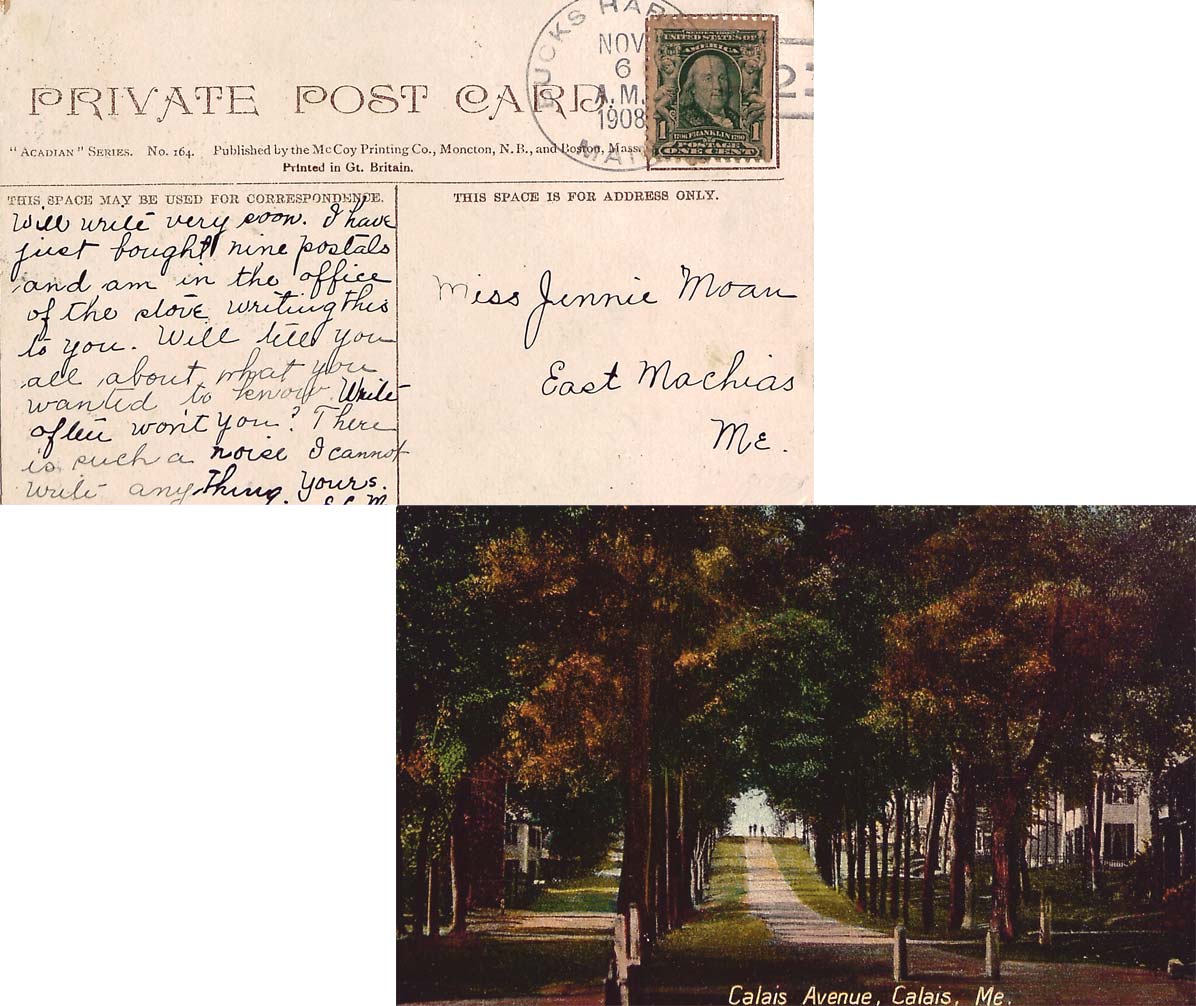 BUCKS HAR
NOV
6
A.M.
1908
MAI
SERIES 1902
UNITED STATES OF
AMERICA
1 1706 FRANKLIN 1790 1
POSTAGE
ONE CENT
2
PRIVATE POST CARD.
"ACADIAN" SERIES. No. 164. Published by the McCoy Printing Co., Moncton, N.B., and Boston, Mass.
Printed in Gt. Britain.
THIS SPACE MAY BE USED FOR CORRESPONDENCE.
Will write very soon. I have
just bought nine postals
and am in the office
of the store writing this
to you. Will tell you
all about what you
wanted to know. Write
often won't you? There
is such a noise I cannot
write any thing. Yours.
THIS SPACE IS FOR ADDRESS ONLY.
Miss Jennie Moan
East Machias
Me.
Calais Avenue, Calais, Me.